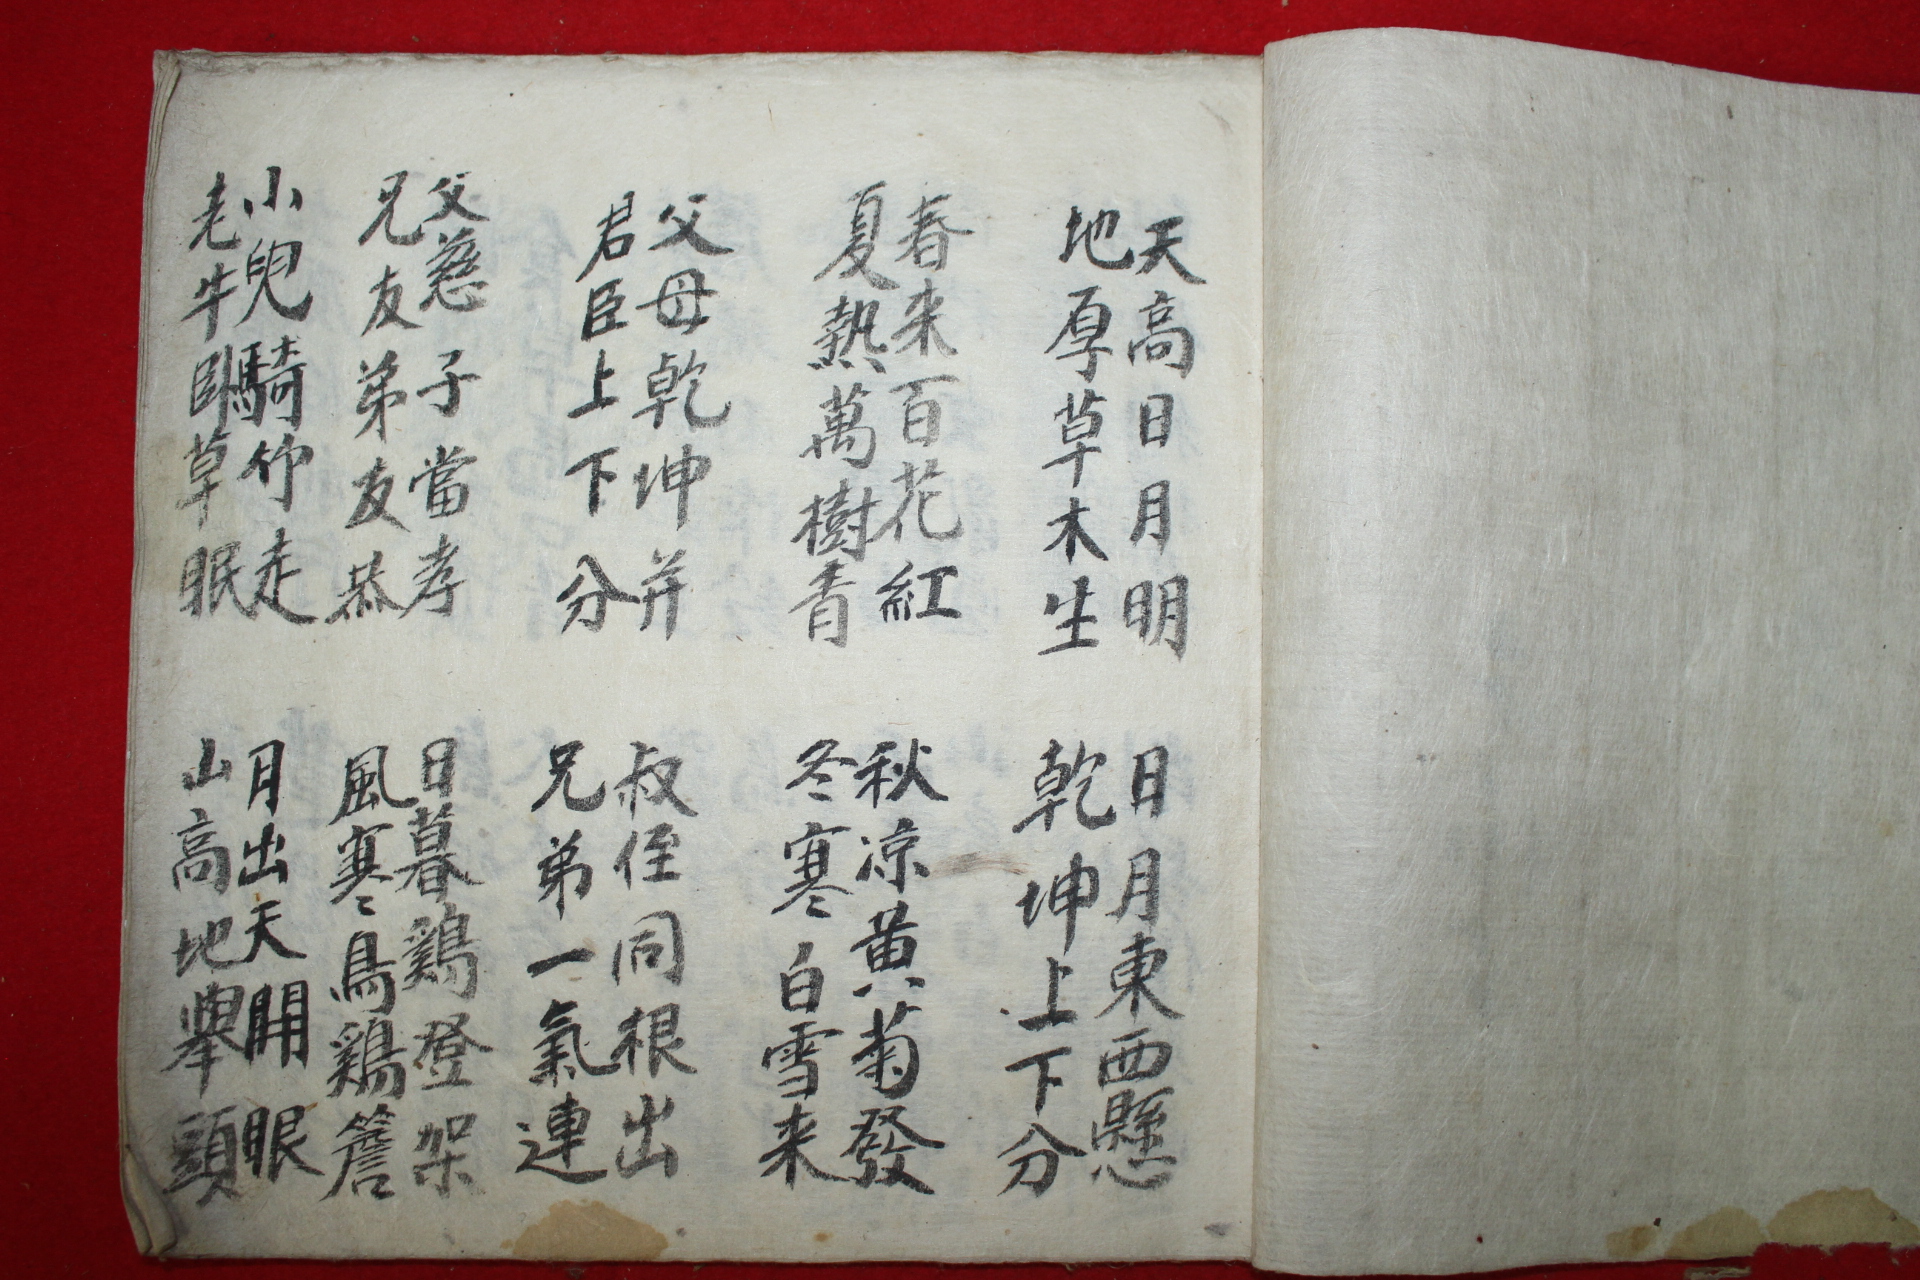 天高日月明
地厚草木生
日月東西懸
乾坤上下分
春来百花紅
夏熱萬樹青
秋凉黄菊發
冬寒白雪来
父母乾坤并
君臣上下分
叔侄同根出
兄弟一氣連
父慈子當孝
兄友弟友恭
日暮鷄登架
風寒鳥鷄簷
小兒騎竹走
老牛臥草眠
月出天開眼
山高地擧頭